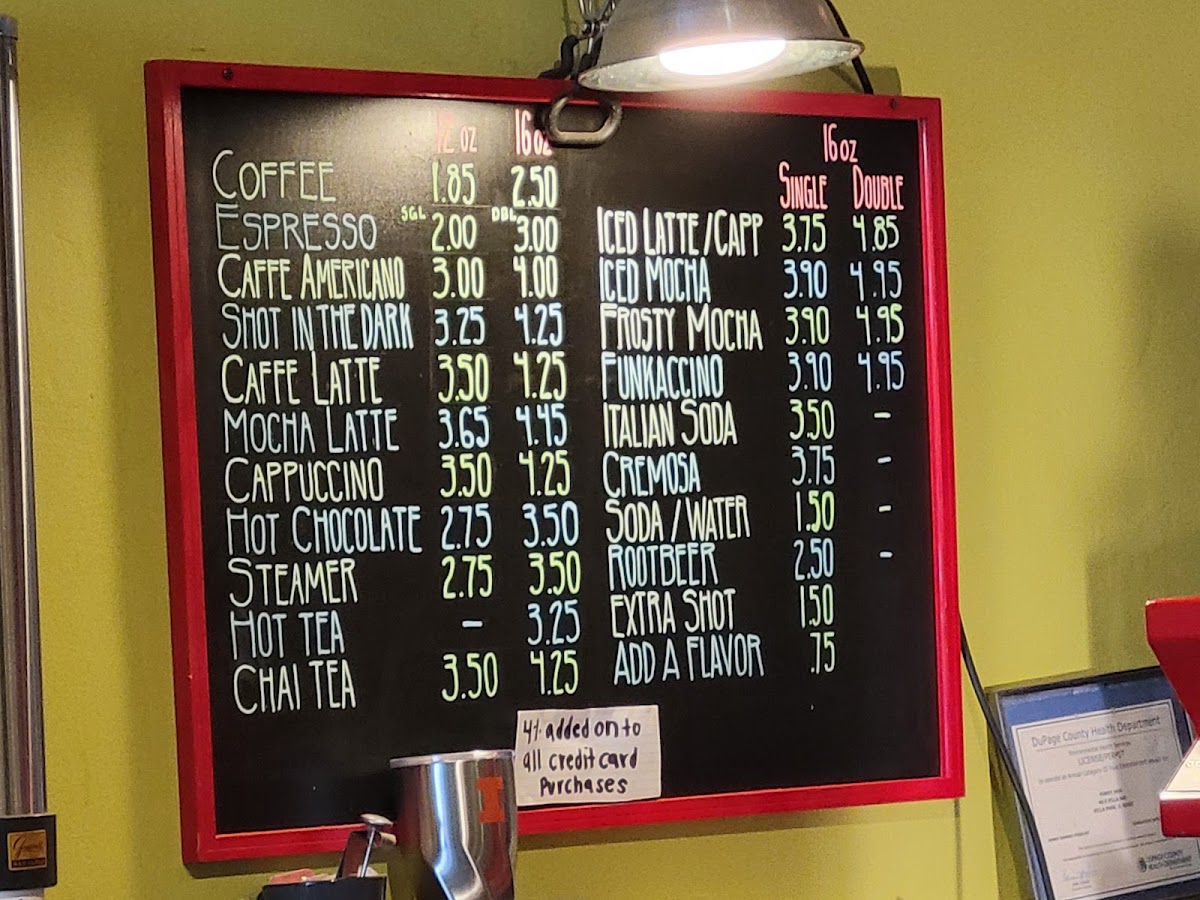 12 oz 16 oz
COFFEE 1.85 2.50
ESPRESSO SGL 2.00 DBL 3.00
CAFFE AMERICANO 3.00 4.00
SHOT IN THE DARK 3.25 4.25
CAFFE LATTE 3.50 4.25
MOCHA LATTE 3.65 4.45
CAPPUCCINO 3.50 4.25
HOT CHOCOLATE 2.75 3.50
STEAMER 2.75 3.50
HOT TEA - 3.25
CHAI TEA 3.50 4.25
16 oz
SINGLE DOUBLE
ICED LATTE/CAPP 3.75 4.85
ICED MOCHA 3.90 4.95
FROSTY MOCHA 3.90 4.95
FUNKACCINO 3.90 4.95
ITALIAN SODA 3.50 -
CREMOSA 3.75 -
SODA/WATER 1.50 -
ROOTBEER 2.50 -
EXTRA SHOT 1.50
ADD A FLAVOR .75
4% added on to
all credit card
Purchases
I
DuPage County Health Department
Environmental Health Services
LICENSE/PERMIT
DUPAGE COUNTY
HEALTH DEPARTMENT